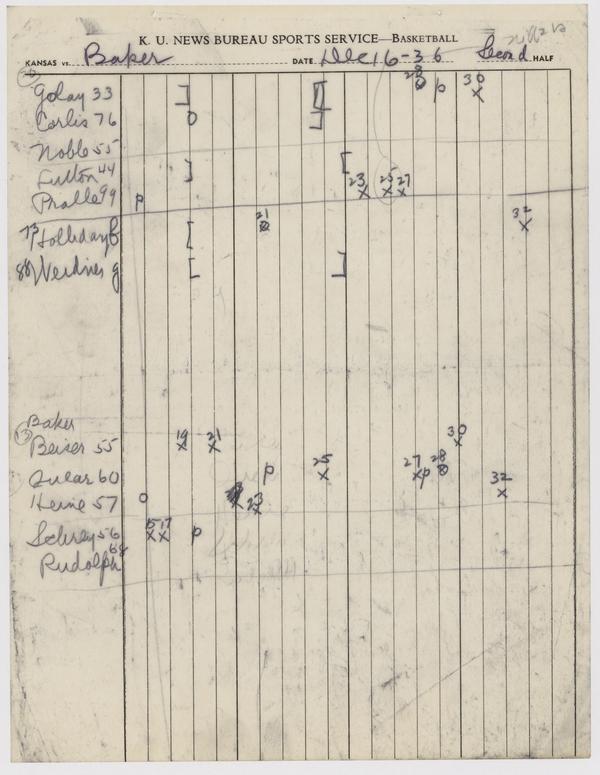 K. U. NEWS BUREAU SPORTS SERVICE—BASKETBALL
KANSAS vs. Baker DATE Dec 16-36 Second HALF
Golay 33 ] [ 28 p 30 x
Corlis 76 0 ]
Noble 55 [
Fulton 44 ] 23 x 25 x 27 x
Pralle 99 p
73 Holliday f [ 21 32 x
88 Weidner g [ ]
Baker
13 Beiser 55 19 x 21 x 30 x
60 p 25 x 27 x p 28 32 x
Heine 57 0 x 23 x
Schrey 56 15 x 17 x p
Rudolph 68